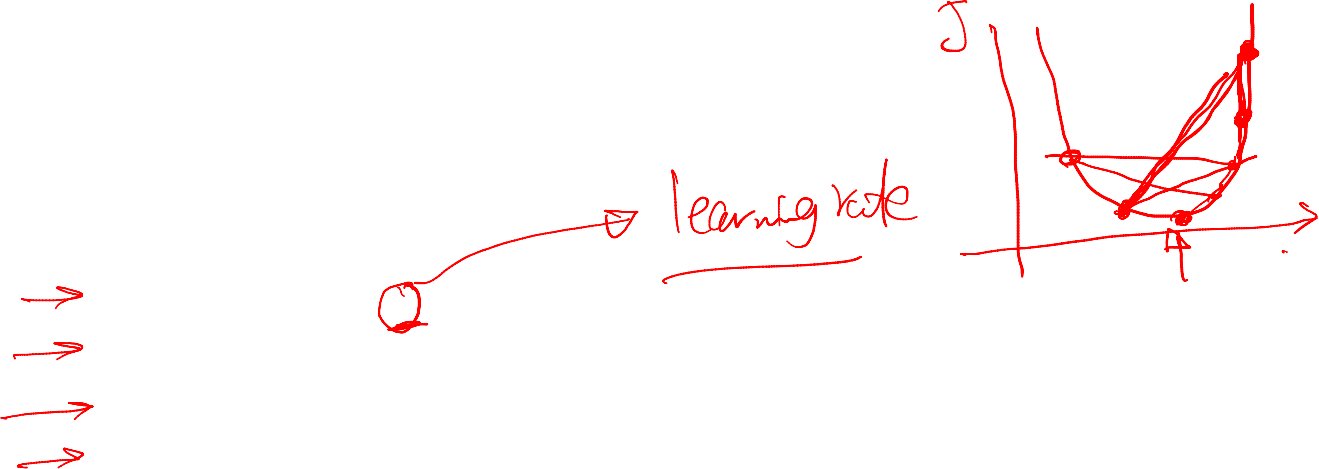 J
learning rate